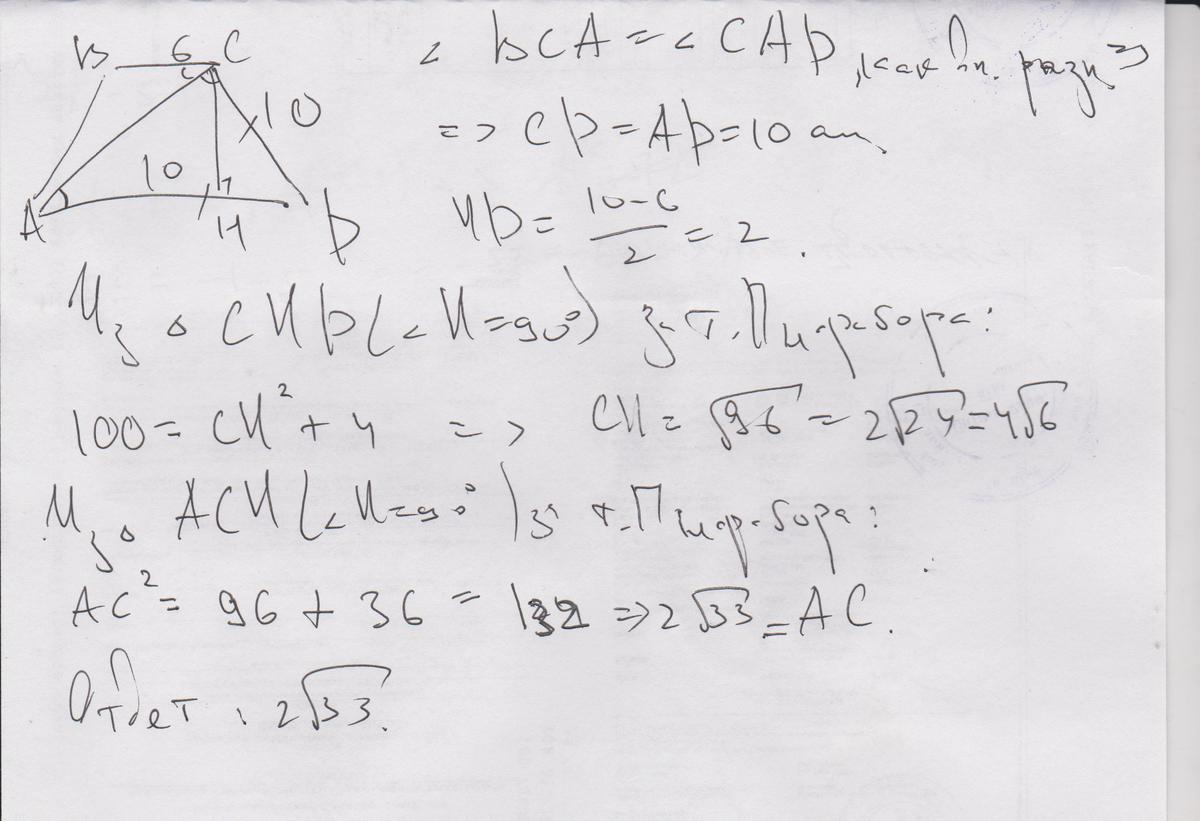 B 6 C
10
10
A H D
∠ BCA = ∠ CAD, как вн. разн =>
=> CD = AD = 10 см.
HD = (10-6)/2 = 2.
Из △ CHD (∠ H = 90°) з т. Пифагора:
100 = CH² + 4 => CH = √96 = 2√24 = 4√6
Из △ ACH (∠ H = 90°) з т. Пифагора:
AC² = 96 + 36 = 132 => 2√33 = AC.
Ответ : 2√33.